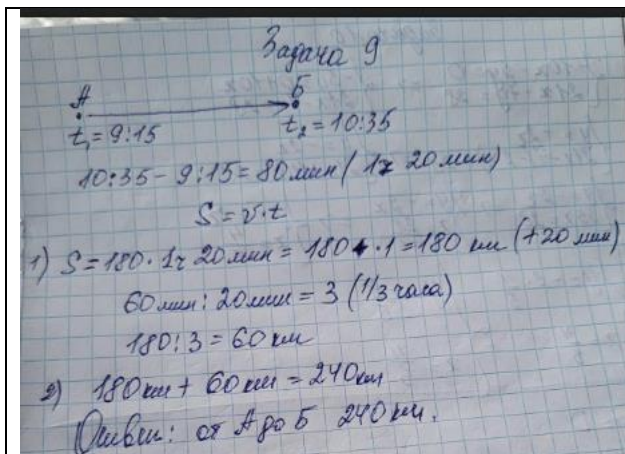 Задача 9
А Б
t₁ = 9:15 t₂ = 10:35
10:35 - 9:15 = 80 мин (1ч 20 мин)
S = v·t
1) S = 180 · 1ч 20 мин = 180 · 1 = 180 км (+20 мин)
60 мин : 20 мин = 3 (1/3 часа)
180 : 3 = 60 км
2) 180 км + 60 км = 240 км
Ответ: от А до Б 240 км.